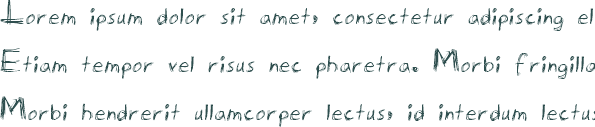 Lorem ipsum dolor sit amet, consectetur adipiscing el
Etiam tempor vel risus nec pharetra. Morbi fringilla
Morbi hendrerit ullamcorper lectus, id interdum lectus